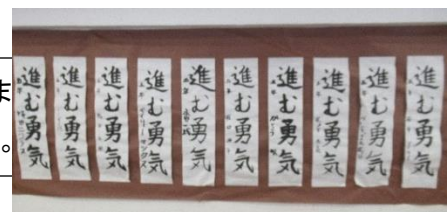 進む勇気
進む勇気
進む勇気
進む勇気
進む勇気
進む勇気
進む勇気
進む勇気
進む勇気
進む勇気
ま
。